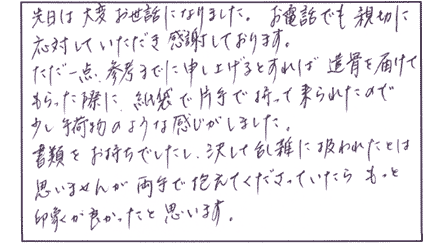 先日は大変お世話になりました。お電話でも親切に
応対していただき感謝しております。
ただ一点、参考までに申し上げるとすれば遺骨を届けて
もらった際に、紙袋で片手で持って来られたので
少し手荷物のような感じがしました。
書類をお持ちでしたし、決して乱雑に扱われたとは
思いませんが両手で抱えてくださっていたらもっと
印象が良かったと思います。